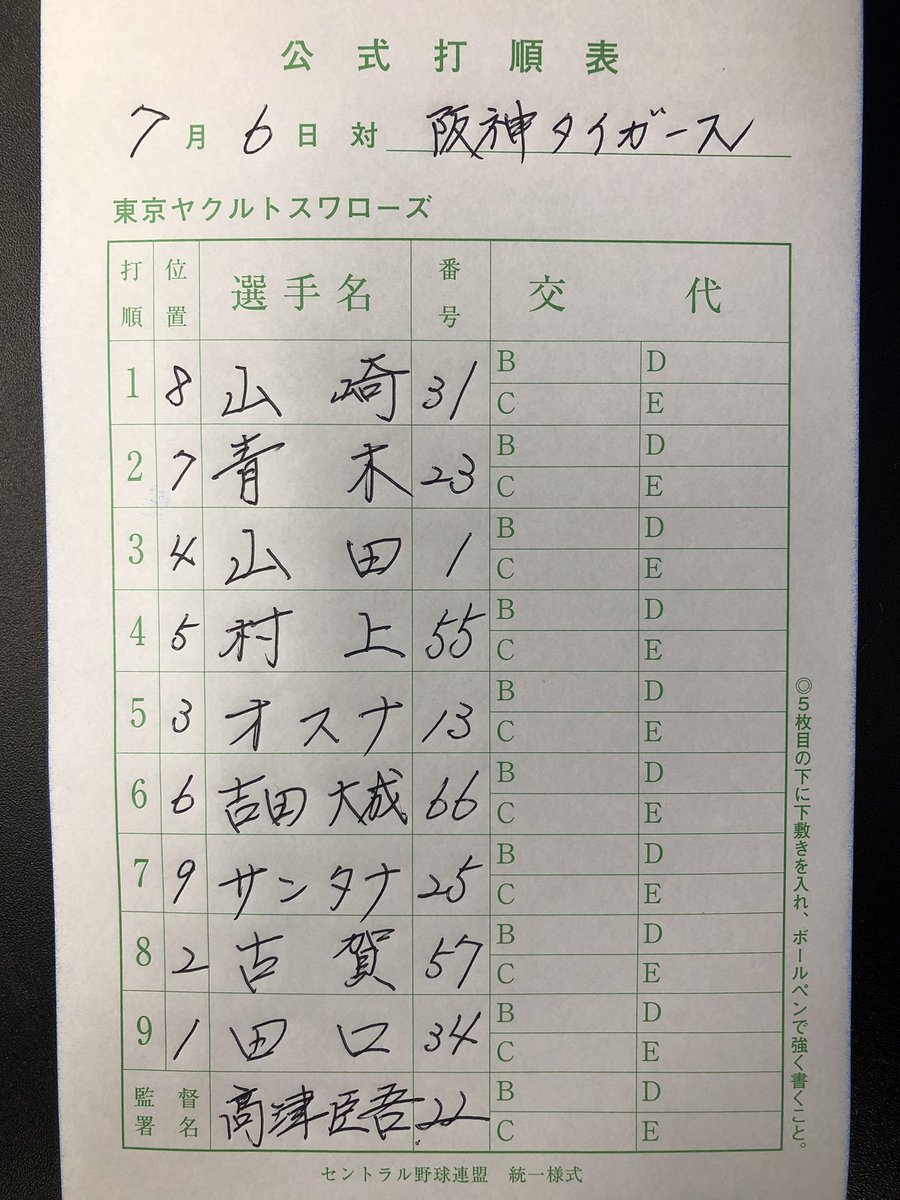 公式打順表
7月6日 対 阪神タイガース
東京ヤクルトスワローズ
打順 位置 選手名 番号 交代
1 8 山崎 31 B D C E
2 7 青木 23 B D C E
3 4 山田 1 B D C E
4 5 村上 55 B D C E
5 3 オスナ 13 B D C E
6 6 吉田大成 66 B D C E
7 9 サンタナ 25 B D C E
8 2 古賀 57 B D C E
9 1 田口 34 B D C E
監督署名 高津臣吾 22 B D C E
◎5枚目の下に下敷きを入れ、ボールペンで強く書くこと。
セントラル野球連盟 統一様式